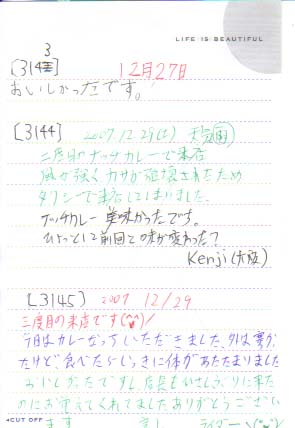 LIFE IS BEAUTIFUL
3
[3143] 12月27日
おいしかったです。
[3144] 2007.12.29(土) 天気 雨
二度目のナッチカレーで来店
風が強くカサが破壊されたため
タクシーで来店してしまいました。
ナッチカレー美味かったです。
ひょっとして前回と味が変わった?
Kenji(大阪)
[3145] 2007 12/29
三度目の来店です(^^)/
今日はカレーなっていただきました、外は寒か
たけど、食べたらいっきに体があたたまりました
おいしかったですし、店長もひさしぶりに来た
のにおぼえてくれてました ありがとうござい
◀CUT OFF ます